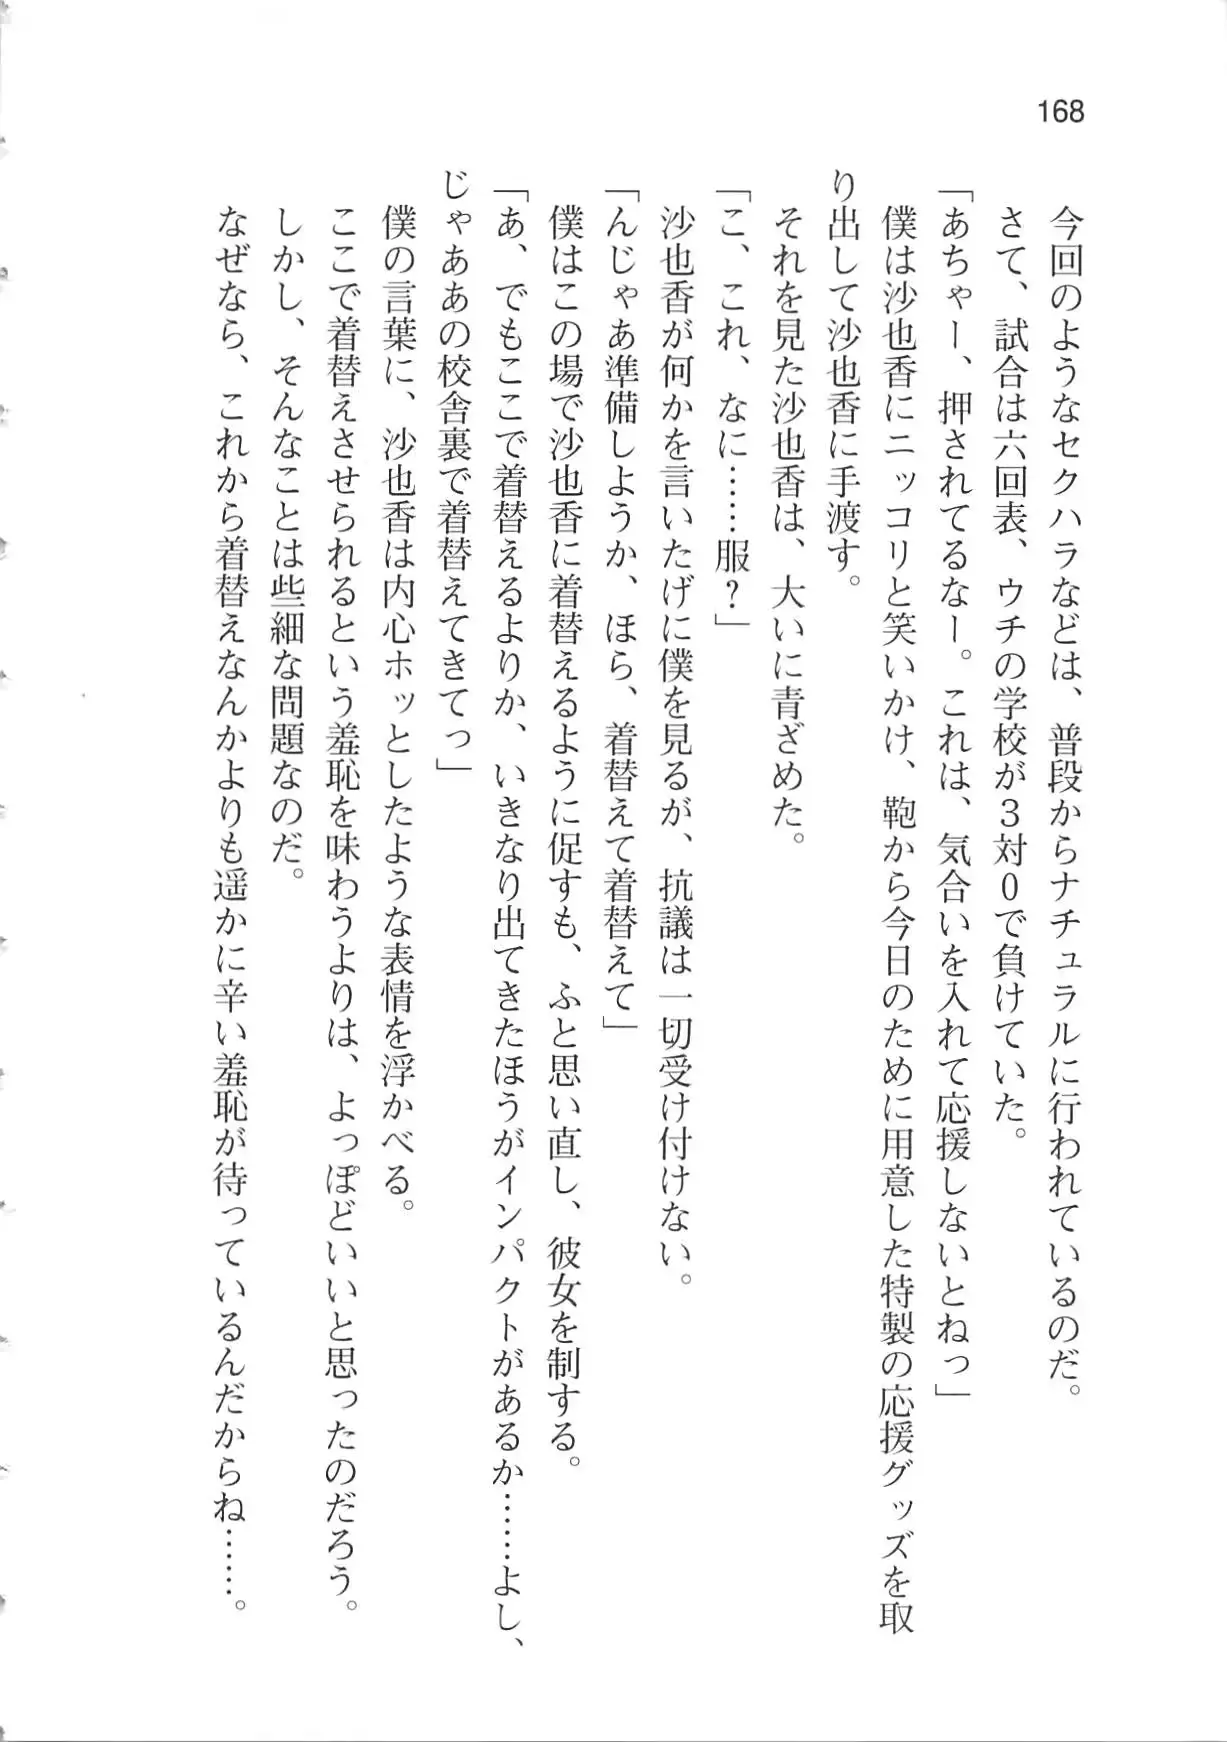 168
今回のようなセクハラなどは、普段からナチュラルに行われているのだ。
さて、試合は六回表、ウチの学校が３対０で負けていた。
「あちゃー、押されてるなー。これは、気合いを入れて応援しないとねっ」
僕は沙也香にニッコリと笑いかけ、鞄から今日のために用意した特製の応援グッズを取
り出して沙也香に手渡す。
それを見た沙也香は、大いに青ざめた。
「こ、これ、なに……服？」
沙也香が何かを言いたげに僕を見るが、抗議は一切受け付けない。
「んじゃあ準備しようか、ほら、着替えて着替えて」
僕はこの場で沙也香に着替えるように促すも、ふと思い直し、彼女を制する。
「あ、でもここで着替えるよりか、いきなり出てきたほうがインパクトがあるか……よし、
じゃああの校舎裏で着替えてきてっ」
僕の言葉に、沙也香は内心ホッとしたような表情を浮かべる。
ここで着替えさせられるという羞恥を味わうよりは、よっぽどいいと思ったのだろう。
しかし、そんなことは些細な問題なのだ。
なぜなら、これから着替えなんかよりも遥かに辛い羞恥が待っているんだからね……。